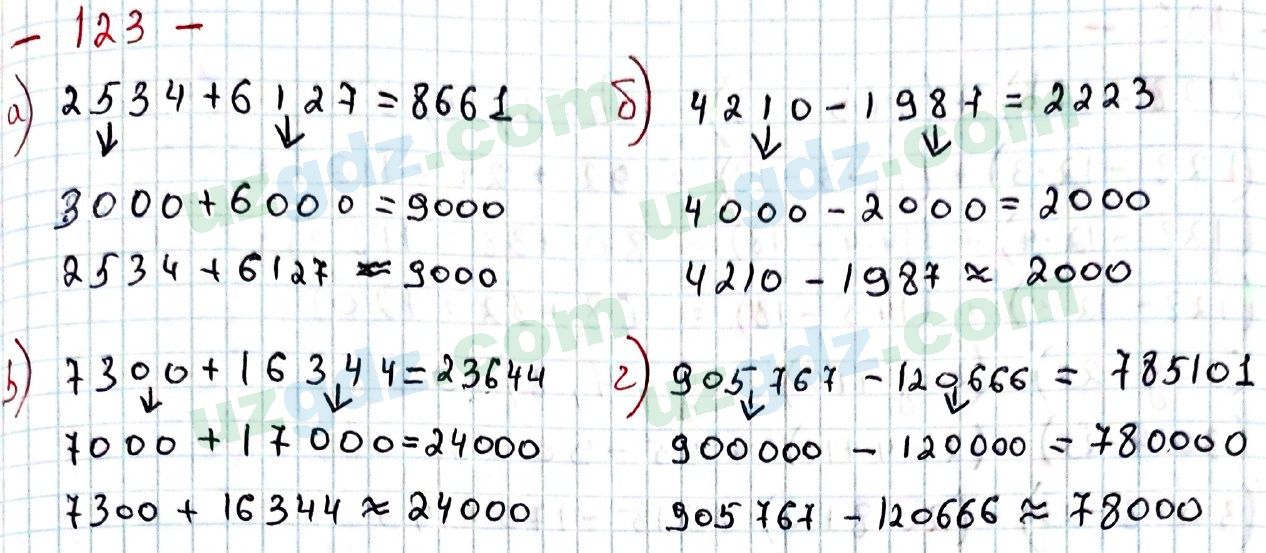 - 123 -
а) 2534+6127=8661
3000+6000=9000
2534+6127≈9000
б) 4210-1987=2223
4000-2000=2000
4210-1987≈2000
в) 7300+16344=23644
7000+17000=24000
7300+16344≈24000
г) 905767-120666=785101
900000-120000=780000
905767-120666≈78000
uzgdz.com
uzgdz.com
uzgdz.com
uzgdz.com